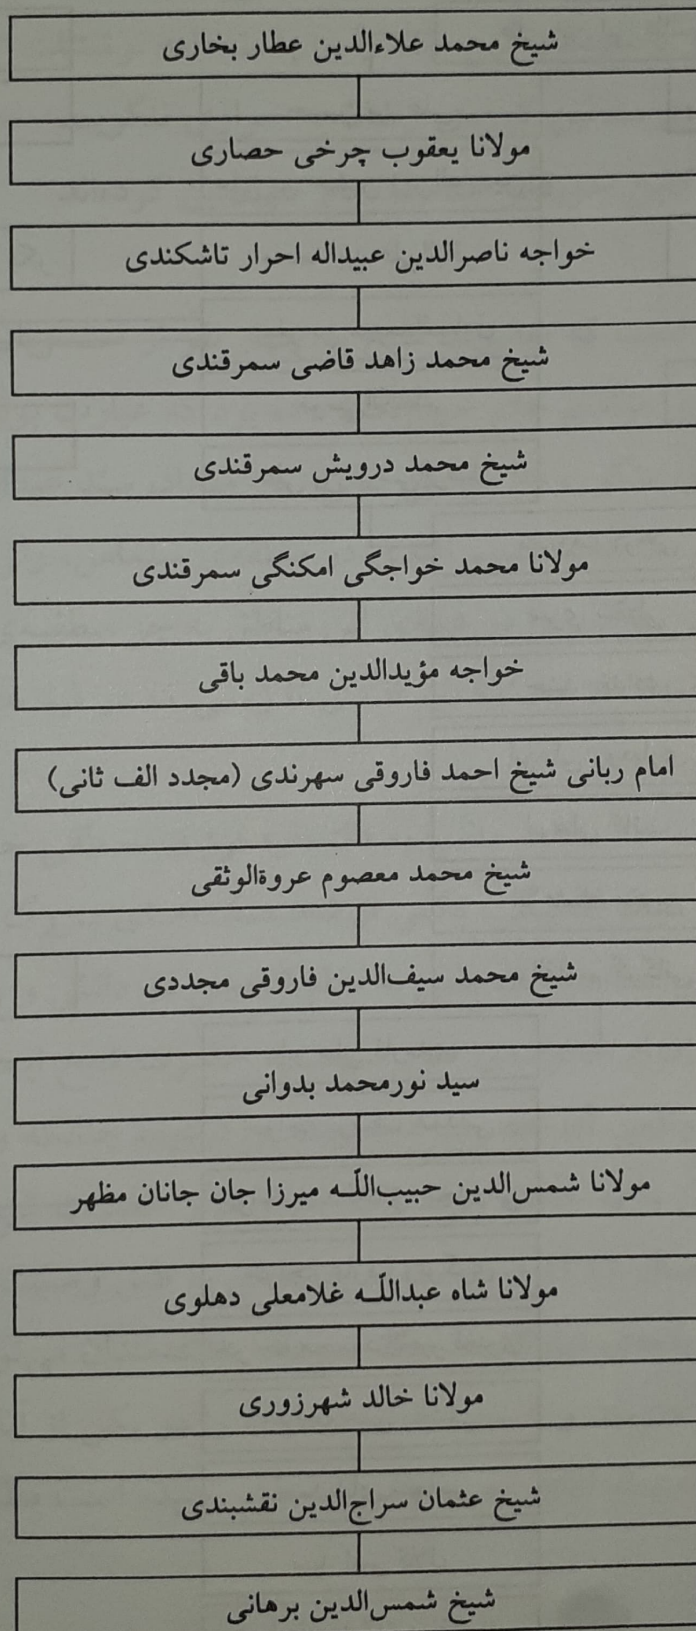 شیخ محمد علاءالدین عطار بخاری
مولانا یعقوب چرخی حصاری
خواجه ناصرالدین عبیداله احرار تاشکندی
شیخ محمد زاهد قاضی سمرقندی
شیخ محمد درویش سمرقندی
مولانا محمد خواجگی امکنگی سمرقندی
خواجه مؤیدالدین محمد باقی
امام ربانی شیخ احمد فاروقی سهرندی (مجدد الف ثانی)
شیخ محمد معصوم عروةالوثقی
شیخ محمد سیف‌الدین فاروقی مجددی
سید نورمحمد بدوانی
مولانا شمس‌الدین حبیب‌اللّه میرزا جان جانان مظهر
مولانا شاه عبداللّه غلامعلی دهلوی
مولانا خالد شهرزوری
شیخ عثمان سراج‌الدین نقشبندی
شیخ شمس‌الدین برهانی